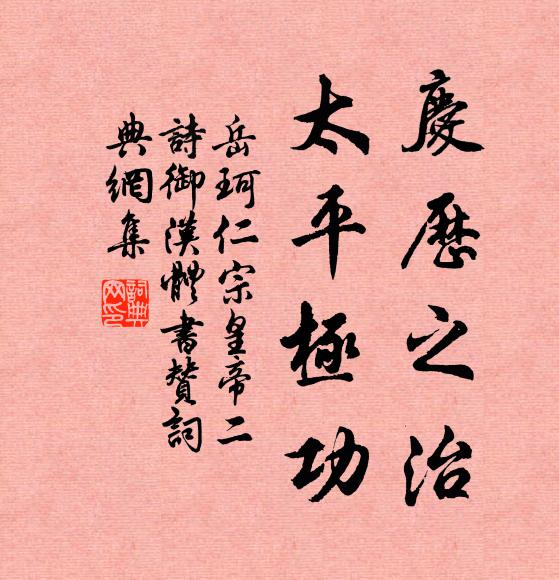 慶歷之治
太平極功
岳珂仁宗皇帝二
詩御漢體書贊詞
典網集
詞典
网印